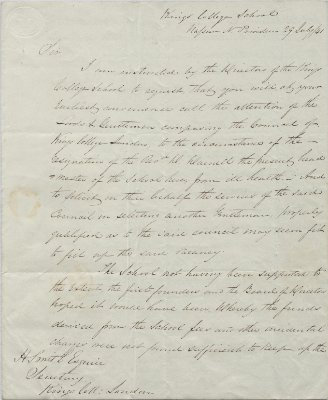 Kings College School
Nassau N. Providence 29 July /41
Sir
I am instructed by the Directors of the Kings
College School to request that you will at your
Earliest convenience call the attention of the
Lords & Gentlemen composing the Council of
Kings College London to the circumstances of the
resignation of the Revd. W. the present head
Master of the School here, from ill health — And
to solicit on their behalf the services of the said
Council in selecting another Gentleman properly
qualified as to the said Council may seem fit
to fill up the said vacancy
The School not having been supported to
the extent the first founders and the Board of Directors
hoped it would have been whereby the funds
derived from the School fees and other incidental
charges were not found sufficient to keep up the
H Smith Esquire
Secretary
Kings Coll: London